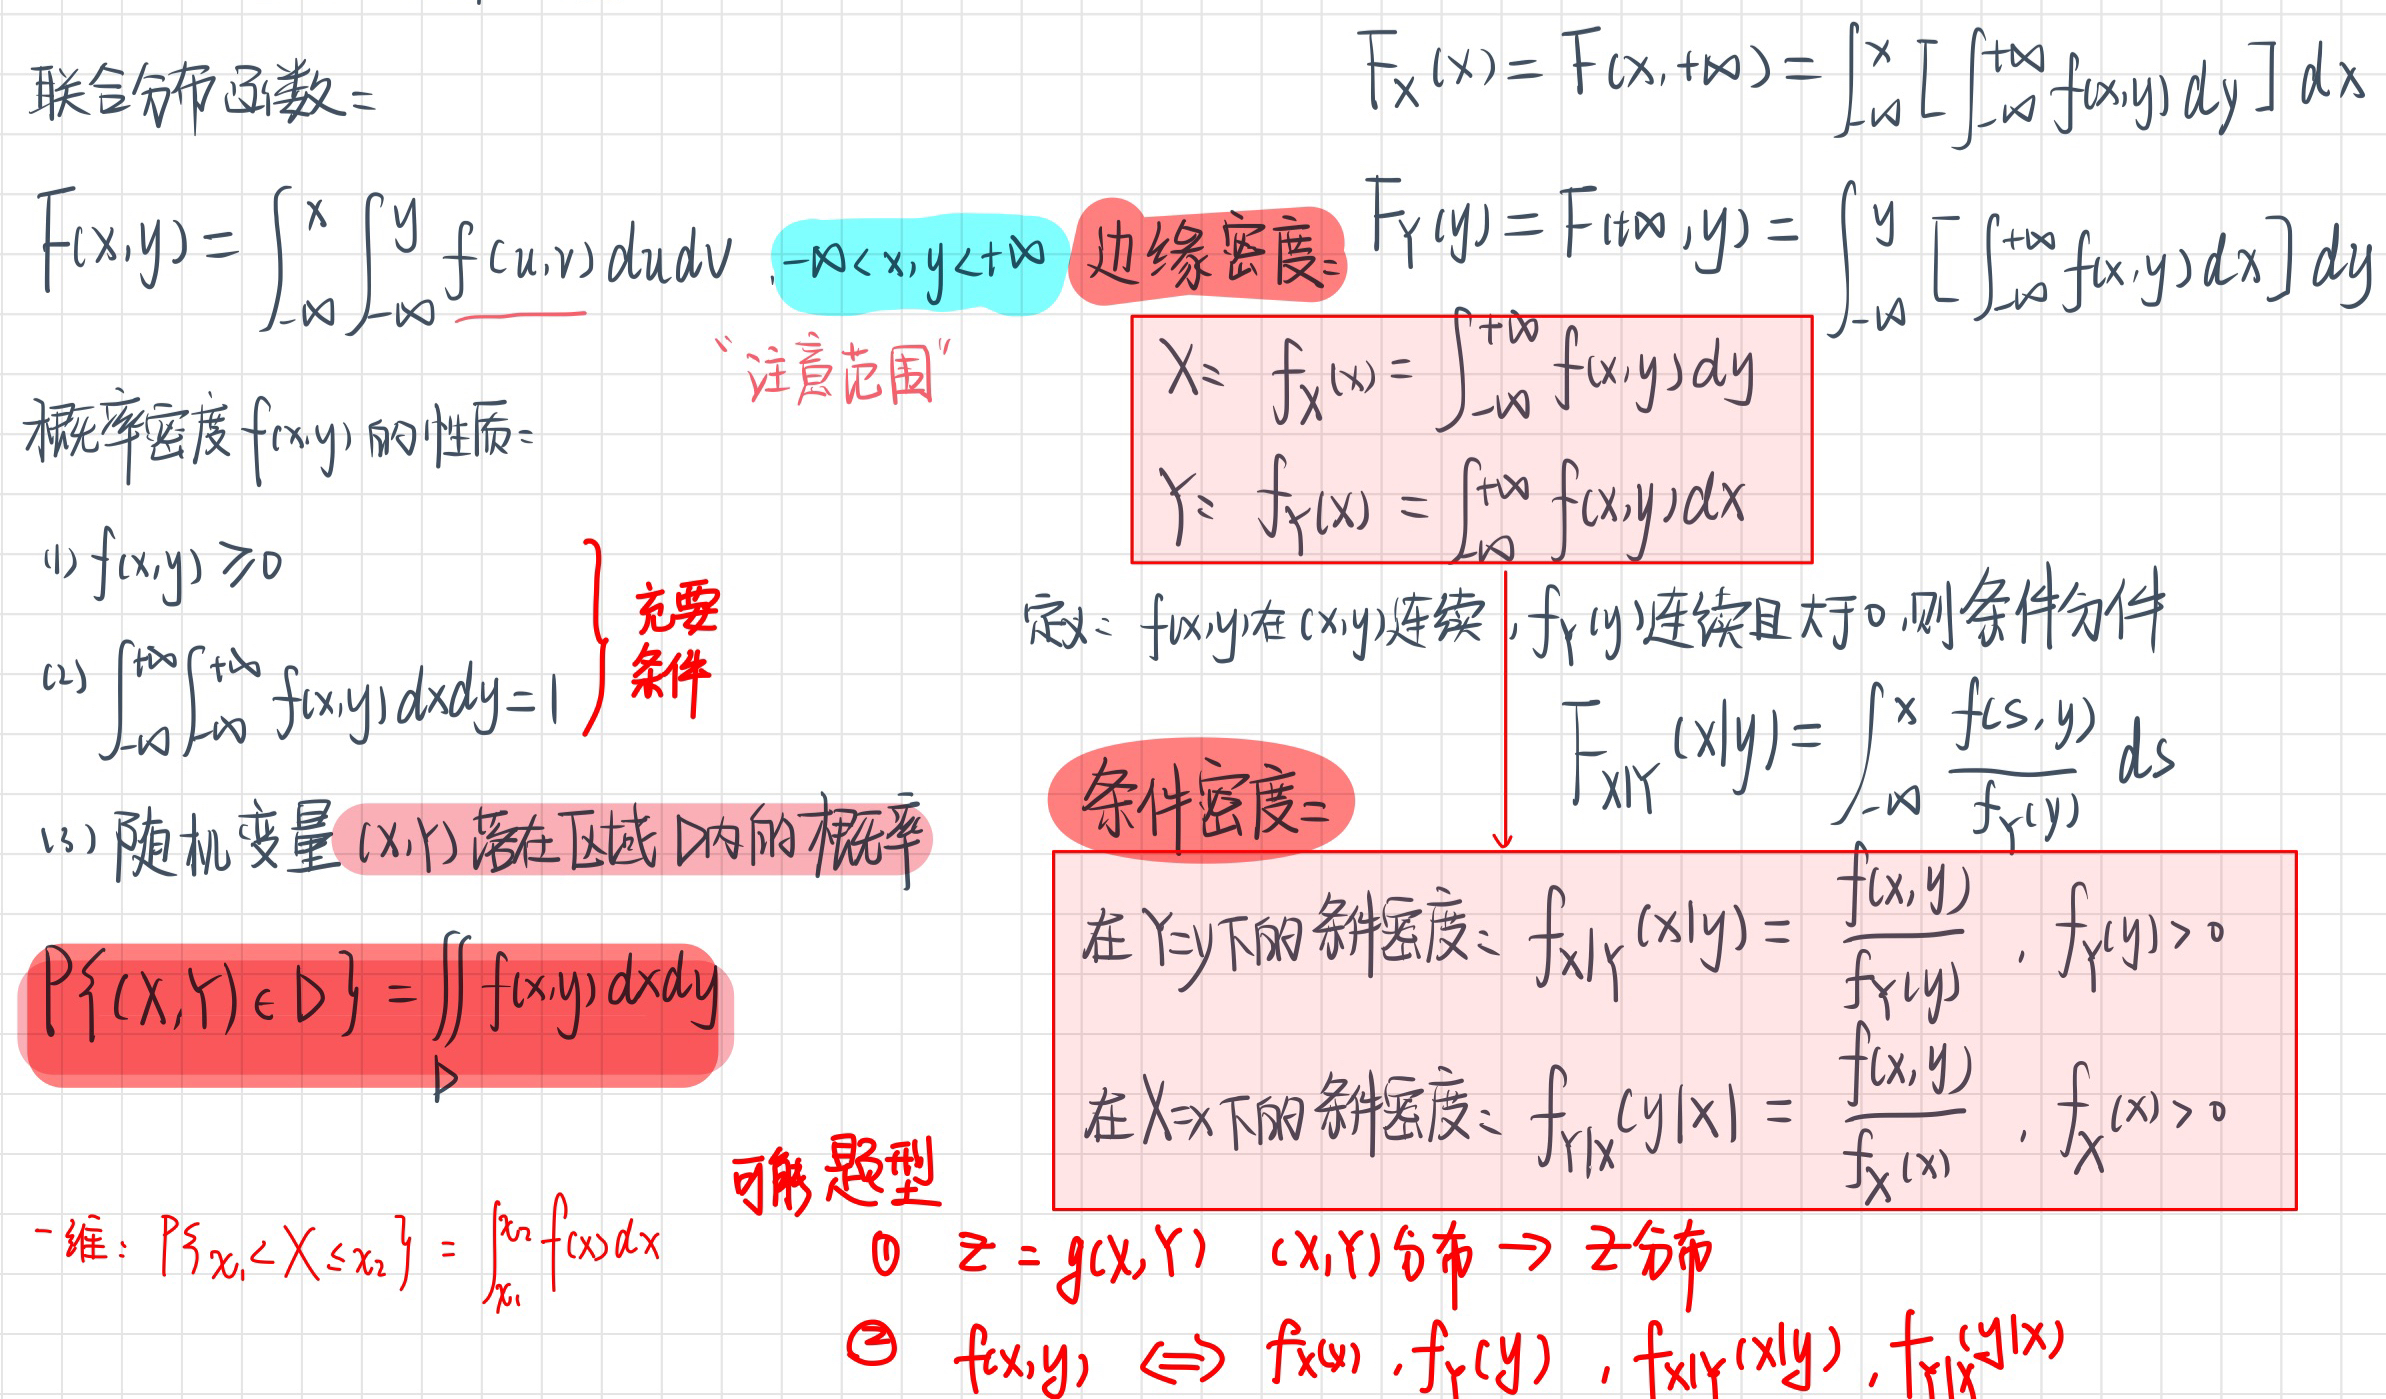 联合分布函数:
F(x,y) = ∫_{-∞}^{x} ∫_{-∞}^{y} f(u,v) du dv , -∞<x,y<+∞
“注意范围”
概率密度 f(x,y) 的性质:
(1) f(x,y) ≥ 0
(2) ∫_{-∞}^{+∞} ∫_{-∞}^{+∞} f(x,y) dxdy = 1
充要
条件
(3) 随机变量 (X,Y) 落在区域 D内的概率
P{(X,Y) ∈ D} = ∬_D f(x,y) dxdy
一维: P{x₁ < X ≤ x₂} = ∫_{x₁}^{x₂} f(x) dx
F_X(x) = F(x,+∞) = ∫_{-∞}^{x} [∫_{-∞}^{+∞} f(x,y) dy] dx
边缘密度:
F_Y(y) = F(+∞,y) = ∫_{-∞}^{y} [∫_{-∞}^{+∞} f(x,y) dx] dy
X: f_X(x) = ∫_{-∞}^{+∞} f(x,y) dy
Y: f_Y(x) = ∫_{-∞}^{+∞} f(x,y) dx
定义: f(x,y)在(x,y)连续, f_Y(y)连续且大于0,则条件分件
F_{X|Y}(x|y) = ∫_{-∞}^{x} f(s,y)/f_Y(y) ds
条件密度:
在Y=y下的条件密度: f_{X|Y}(x|y) = f(x,y)/f_Y(y) , f_Y(y)>0
在X=x下的条件密度: f_{Y|X}(y|x) = f(x,y)/f_X(x) , f_X(x)>0
可能题型
① Z = g(X,Y) (X,Y)分布 → Z分布
② f(x,y) ⟺ f_X(x) , f_Y(y) , f_{X|Y}(x|y) , f_{Y|X}(y|x)